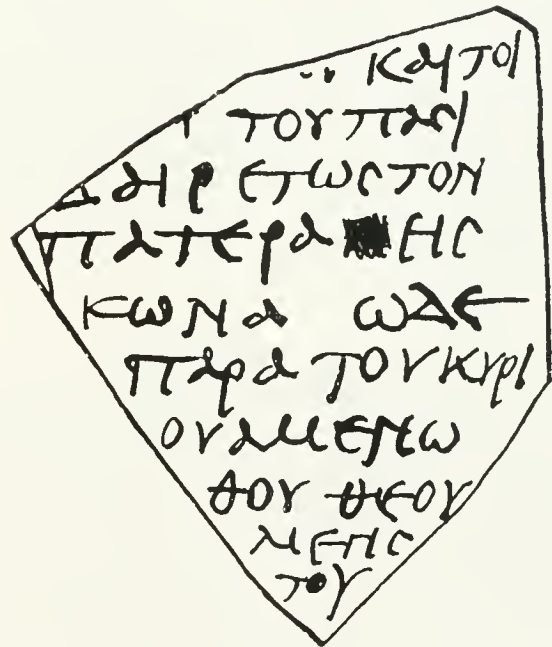 και τοι
του πασι
ετωс τον
πατερα εις
κωνα ωδε
παρα του κυρι
ου αμενω
θου θεου
μεγις
του